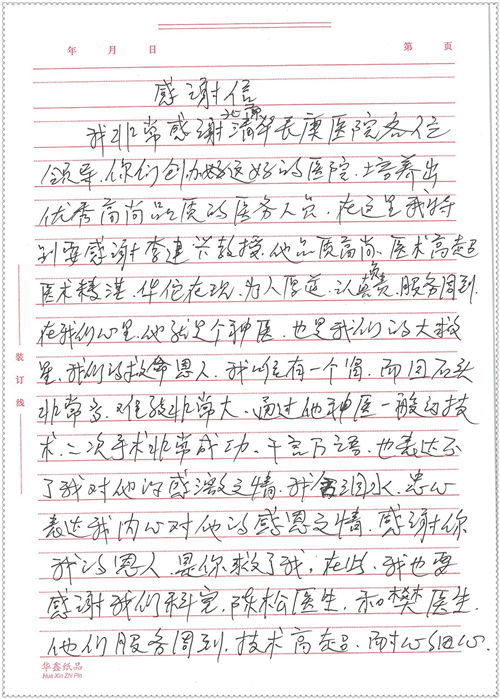 年 月 日 第 页
感谢信
北京
我非常感谢清华长庚医院各位
领导,你们创办好这好的医院,培养出
优秀高尚品质的医务人员,在这里我特
别要感谢李建兴教授,他品质高尚,医术高超
医术精湛,华佗在现,为人厚道,认真负责,服务周到,
在我们心里,他就是个神医,也是我们的大救
星,我们的救命恩人,我唯有一个肾,而因石头
非常多,难度非常大,通过他神医一般的技
术,二次手术非常成功,千言万语,也表达不
了我对他的感激之情,我含泪水,忠心
表达我内心对他的感恩之情,感谢你
我的恩人,是你救了我,在此,我也要
感谢我们科室,陈松医生,和樊医生,
他们服务周到,技术高超,耐心细心.
装订线
华鑫纸品
Hua Xin Zhi Pin